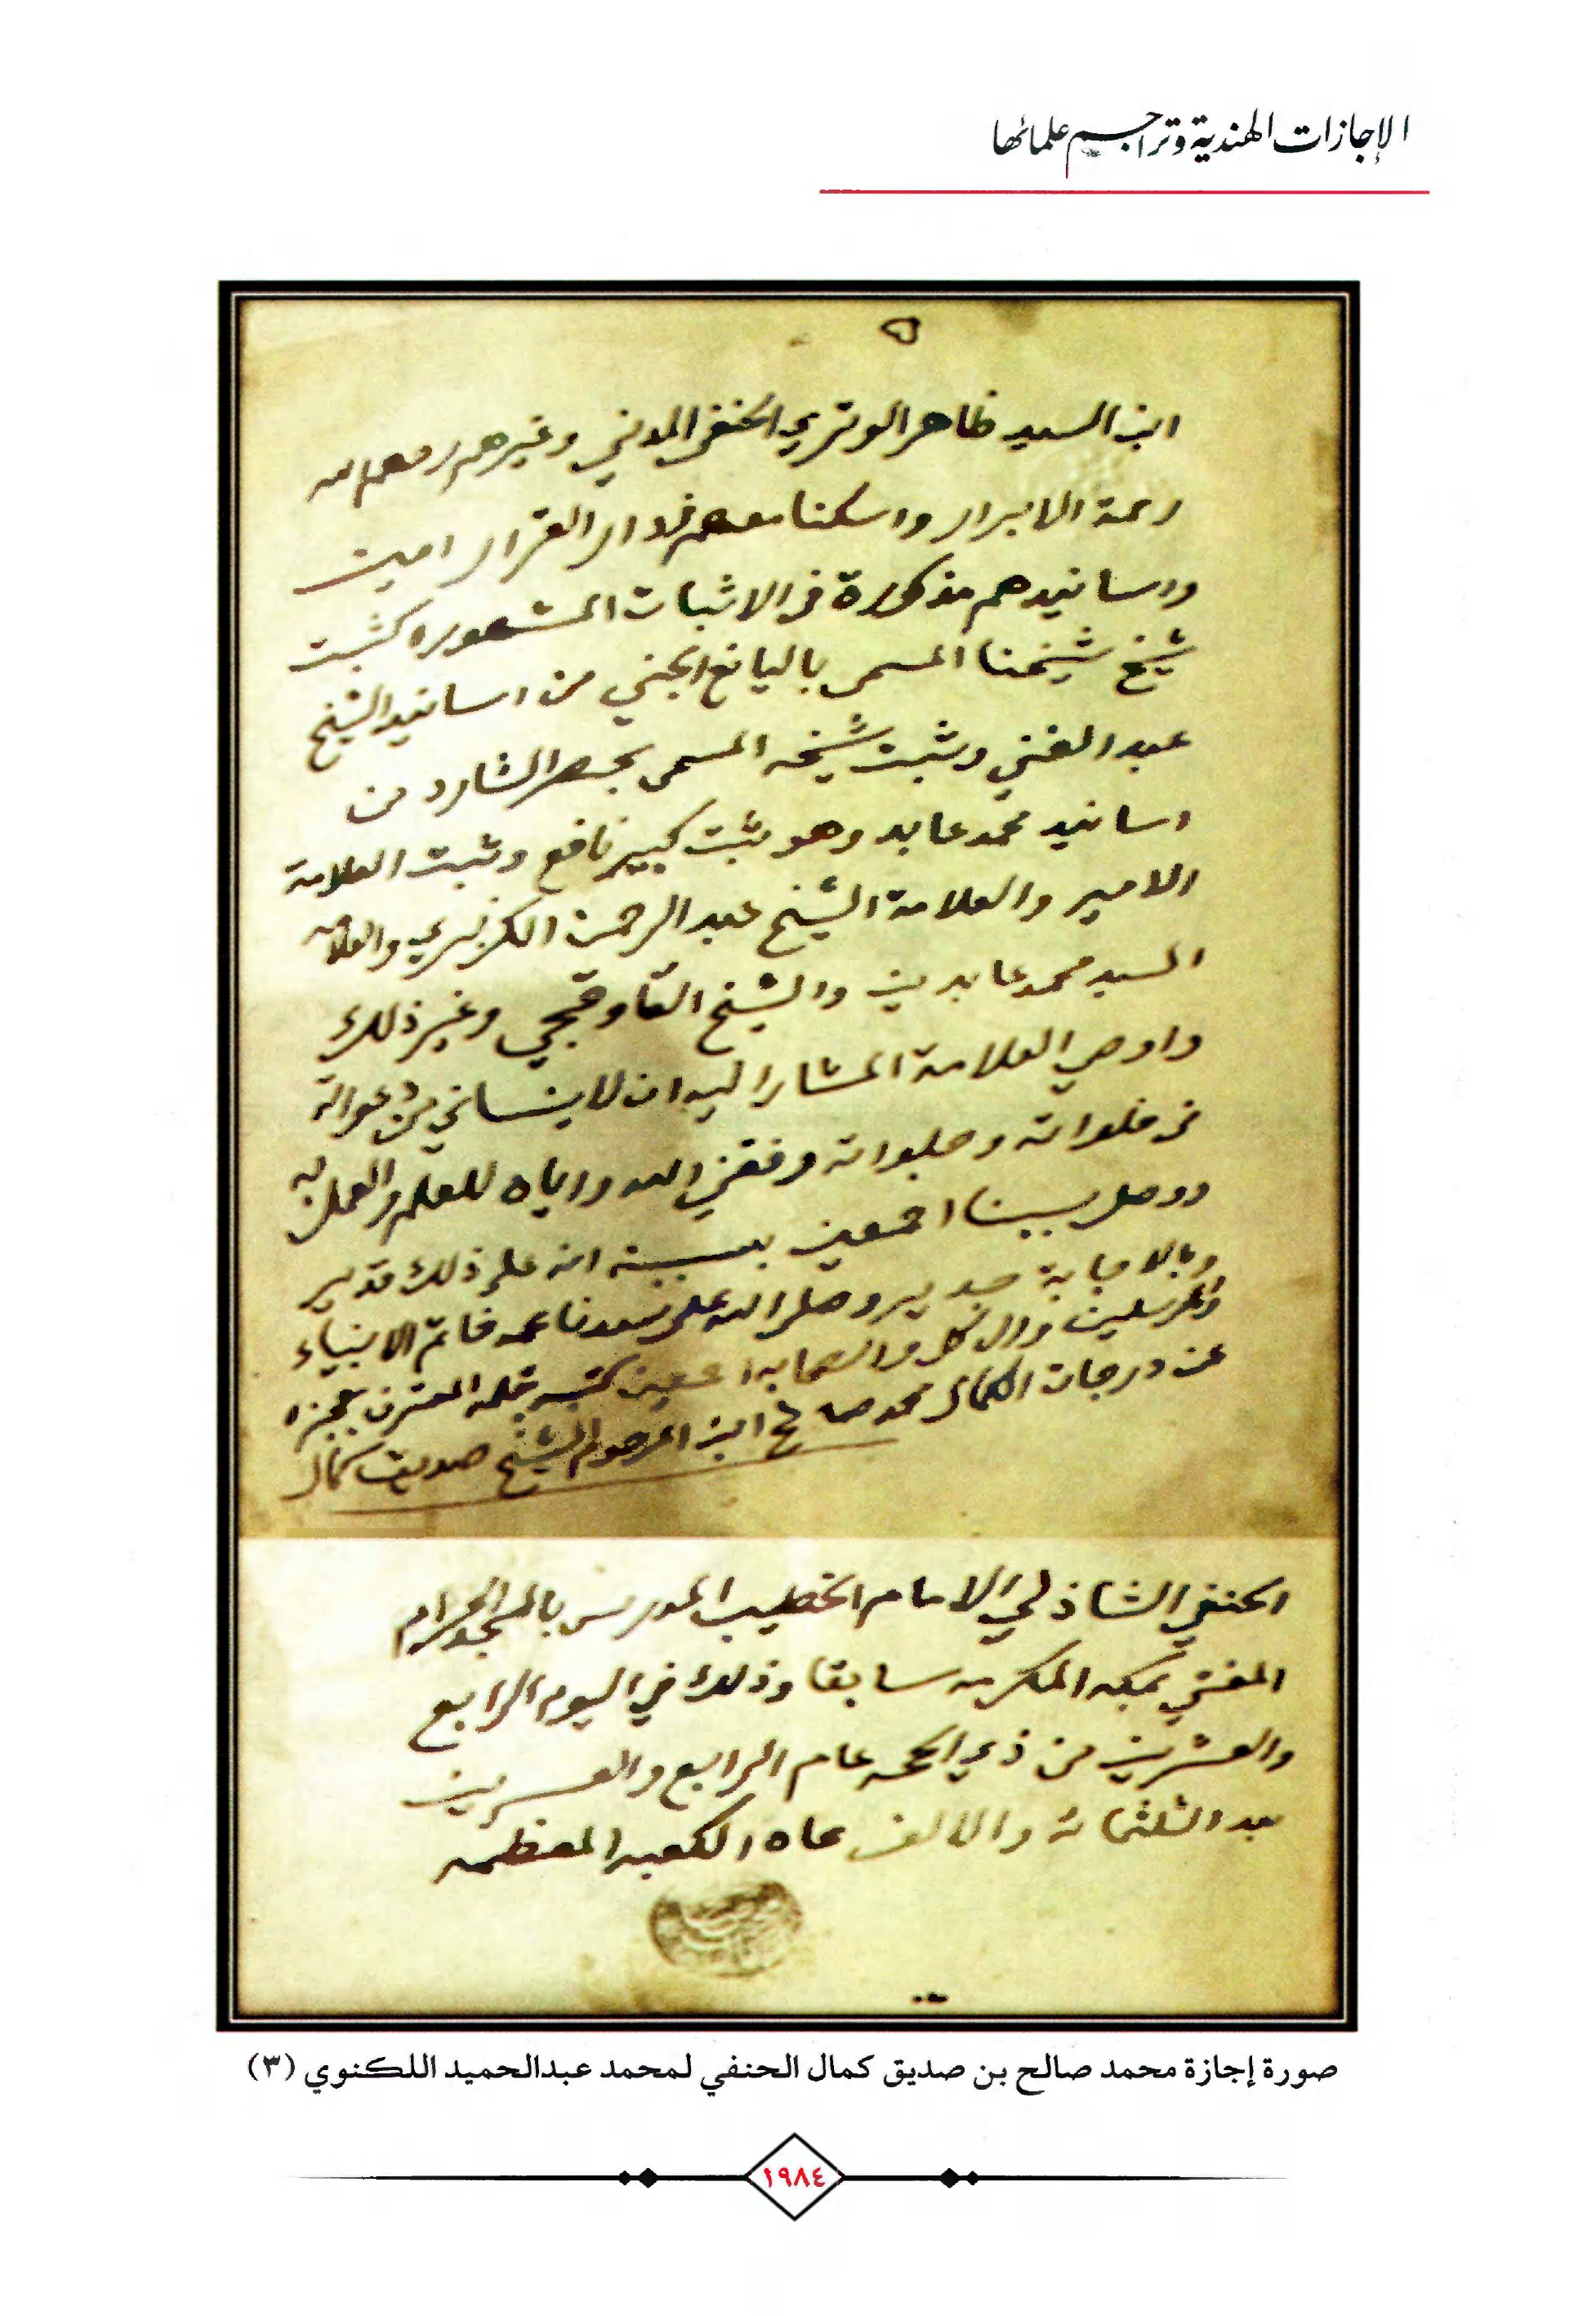 الإجازات الهندية وتراجم علمائها
٥
ابن السيد ظاهر الوتري الحنفي المدني وغيرهم رحمهم الله
رحمة الابرار واسكنا معهم فدار القرار امين
واسانيدهم مذكورة في الاثبات المشهوره كثبت
شيخ شيخنا المسمى باليانع الجني من اسانيد الشيخ
عبد الغني وثبت شيخه المسمى بحصر الشارد من
اسانيد محمد عابد وهو ثبت كبير نافع وثبت العلامة
الامير والعلامة الشيخ عبد الرحمن الكزبري والعلامه
السيد محمد عابدين والشيخ القاوقجي وغير ذلك
واوصي العلامة المشار اليه ان لاينساني من دعواته
في خلواته وجلواته وفقني الله واياه للعلم والعمل به
ووصل سببنا اجمعين بسببه انه على ذلك قدير
وبالاجابة جدير وصلى الله على سيدنا محمد خاتم الانبياء
والمرسلين وال كل والصحابه اجمعين كتبه بقلمه المعترف بعجزه
عن درجات الكمال محمد صالح ابن المرحوم الشيخ صديق كمال
الحنفي الشاذلي الامام الخطيب المدرس بالمسجد الحرام
المفتي بمكه المكرمه سابقا وذلك في اليوم الرابع
والعشرين من ذي الحجه عام الرابع والعشرين
بعد الثلثمائة والالف تجاه الكعبه المعظمه
صورة إجازة محمد صالح بن صديق كمال الحنفي لمحمد عبدالحميد اللكنوي (٣)
١٩٨٤